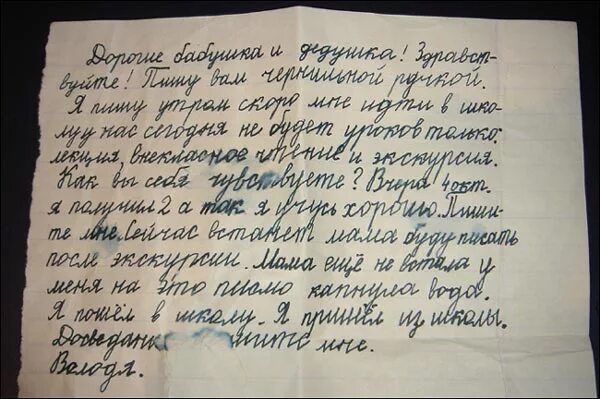 Дорогие бабушка и дедушка! Здравст-
вуйте! Пишу вам чернильной ручкой.
Я пишу утрам скоро мне идти в шко-
лу у нас сегодня не будет уроков только:
лекция, внекласное чтение и экскурсия.
Как вы себя чувствуете? Вчера 4 окт.
я получил 2 а так я учусь хорошо. Пиши-
те мне. Сейчас встанет мама буду писать
после экскурсии. Мама ещё не встала у
меня на это писмо капнула вода.
Я пошёл в школу. Я пришёл из школы.
Досведан мне.
Володя.